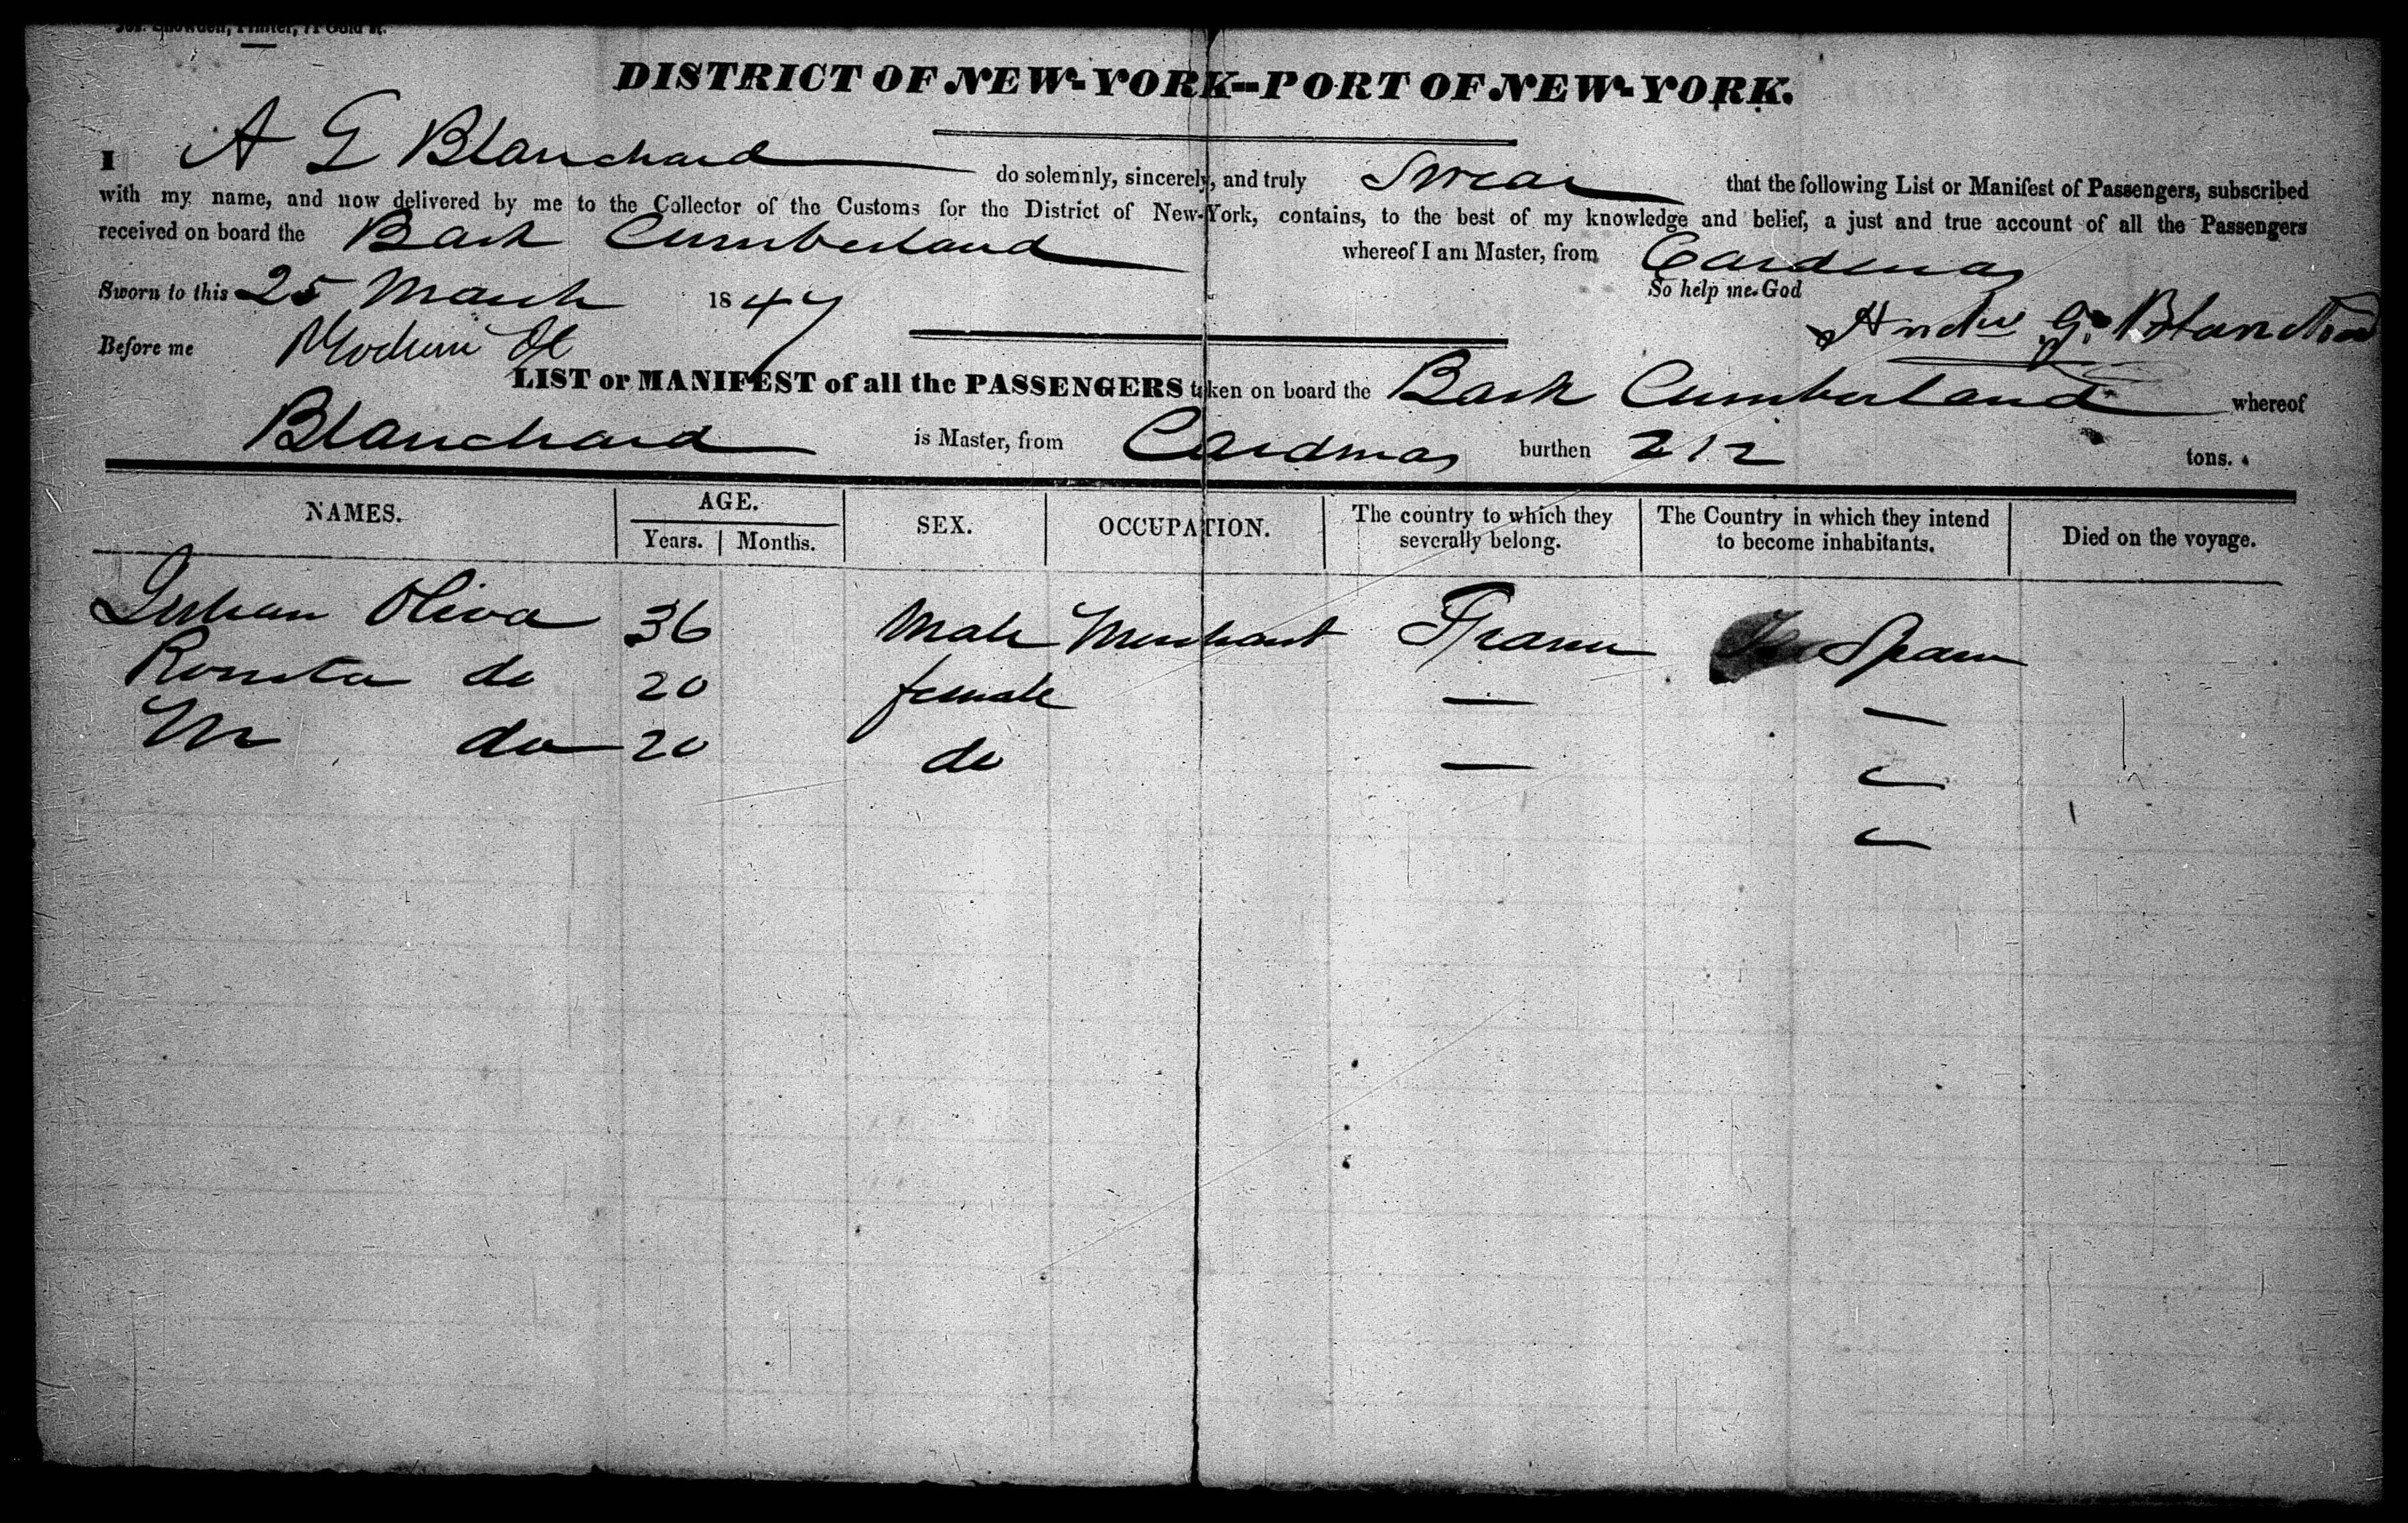 Jos. Snowden, Printer, 71 Gold st.
DISTRICT OF NEW-YORK--PORT OF NEW-YORK.
I A G Blanchard do solemnly, sincerely, and truly Swear that the following List or Manifest of Passengers, subscribed
with my name, and now delivered by me to the Collector of the Customs for the District of New-York, contains, to the best of my knowledge and belief, a just and true account of all the Passengers
received on board the Bark Cumberland whereof I am Master, from Cardenas
Sworn to this 25 March 1847 So help me God
Before me Andw G. Blanchard
LIST or MANIFEST of all the PASSENGERS taken on board the Bark Cumberland whereof
Blanchard is Master, from Cardenas burthen 212 tons.
NAMES. AGE. Years. Months. SEX. OCCUPATION. The country to which they severally belong. The Country in which they intend to become inhabitants. Died on the voyage.
Oliva 36 Male Merchant France Spain
do 20 female — —
M do 20 do — —